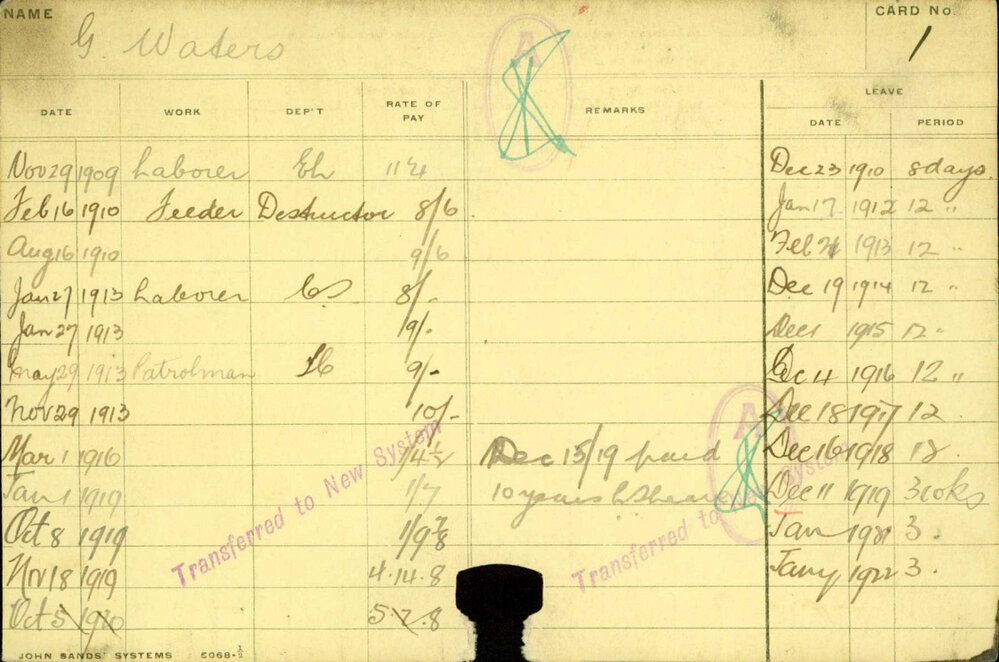 NAME
G. Waters
CARD No.
1
A
DATE WORK DEP'T RATE OF PAY REMARKS
LEAVE
DATE PERIOD
Nov 29 1909 Laborer
Dec 23 1910 8 days.
Feb 16 1910 Feeder Destructor 8/6
Jan 17 1912 12 "
Aug 16 1910 9/6
Feb 1913 12 "
Jan 27 1913 Laborer 8/-
Dec 19 1914 12 "
Jan 27 1913 9/-
Dec 1 1915 12 "
May 29 1913 Patrolman 9/-
Dec 4 1916 12 "
Nov 29 1913 10/-
Dec 18 1917 12.
A
Mar 1 1916 1/4½ Dec 15/19 paid
Dec 16 1918 12.
Jan 1 1919 1/7 10 years
Dec 11 1919 3 wks
Oct 8 1919 1/9⅞
Jan 1921 3.
Nov 18 1919 4.14.8
Jany 1922 3.
Oct 5 1920 5.2.8
Transferred to New System
Transferred to New System
JOHN SANDS' SYSTEMS 6068-½